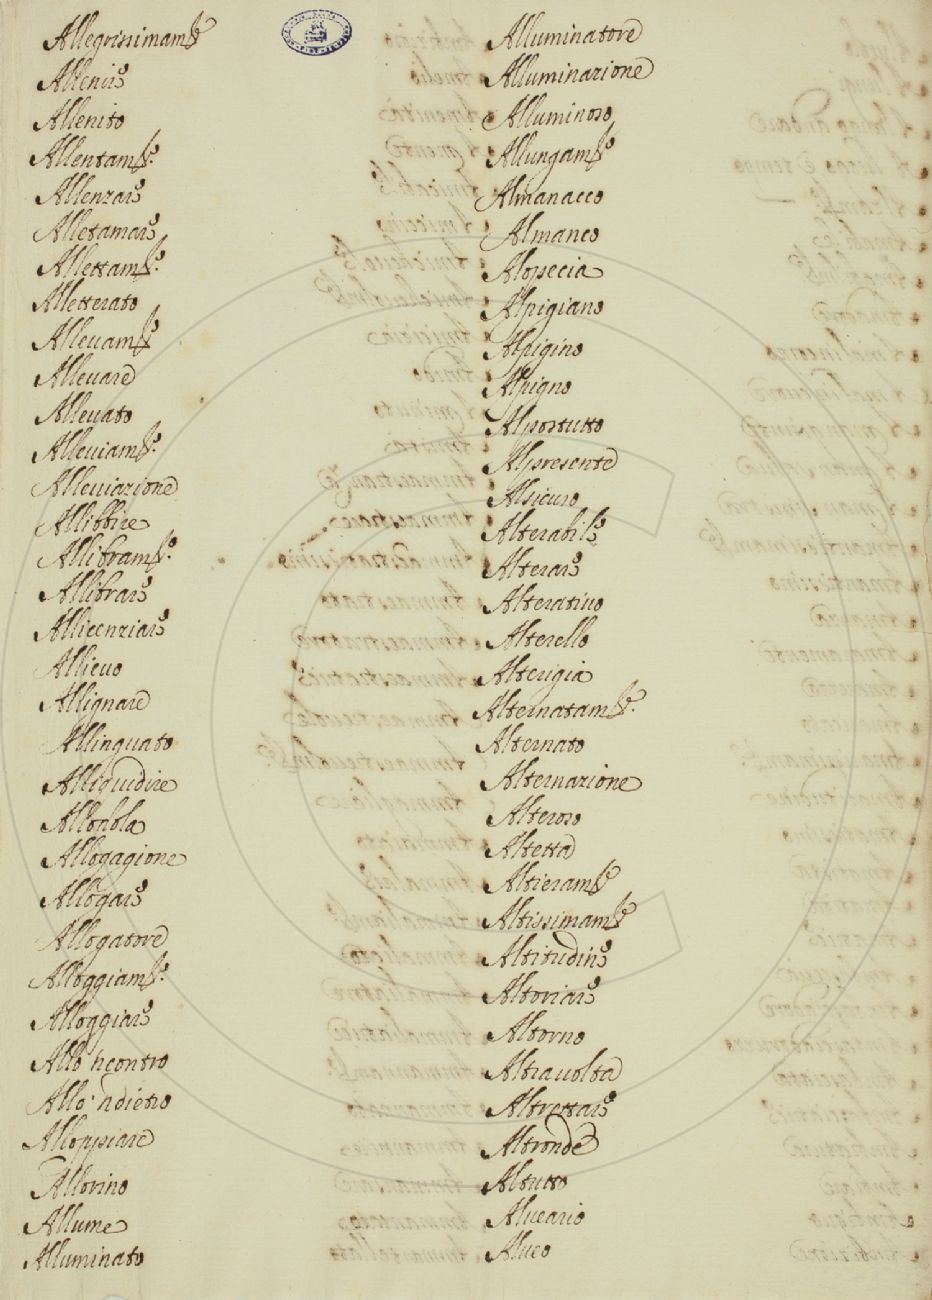 Allegrissimamte
Allenire
Allenito
Allentamto.
Allenzare
Alletamare
Allettamto.
Alletterato
Alleuamto
Alleuare
Alleuato
Alleuiamto.
Alleuiazione
Allibbire
Allibramto.
Allibrare
Allicenziare
Allieuo
Allignare
Allinguato
Alliquidire
Allogagione
Allogare
Allogatore
Alloggiamto.
Alloggiare
Allo'ncontro
Allo'ndietro
Alloppiare
Allorino
Allume
Alluminato
Alluminatore
Alluminazione
Alluminoso
Allungamto
Almanacco
Almanco
Alopecia
Alpigiano
Alpigino
Alpigno
Alpostutto
Alpresente
Alsicuro
Alterabile
Alterare
Alteratiuo
Alterello
Alterigia
Alternatamte.
Alternato
Alternazione
Alteroso
Altetta
Altieramte
Altissimamte
Altitudine
Altoriare
Altorno
Altrauolta
Altrettare
Altronde
Altutto
Alueario
Alueo